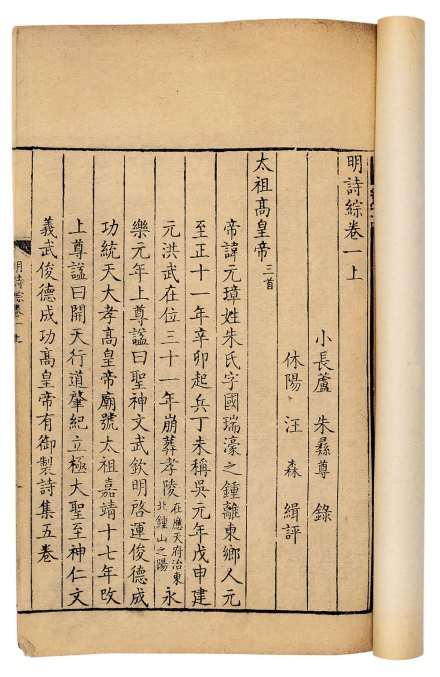 明詩綜卷一上
小長蘆 朱彝尊 錄
休陽 汪森 緝評
太祖高皇帝三首
帝諱元璋姓朱氏字國瑞濠之鍾離東鄉人元
至正十一年辛卯起兵丁未稱吳元年戊申建
元洪武在位三十一年崩葬孝陵在應天府治東北鍾山之陽永
樂元年上尊謚曰聖神文武欽明啓運俊德成
功統天大孝高皇帝廟號太祖嘉靖十七年改
上尊謚曰開天行道肇紀立極大聖至神仁文
義武俊德成功高皇帝有御製詩集五卷
明詩綜卷一上